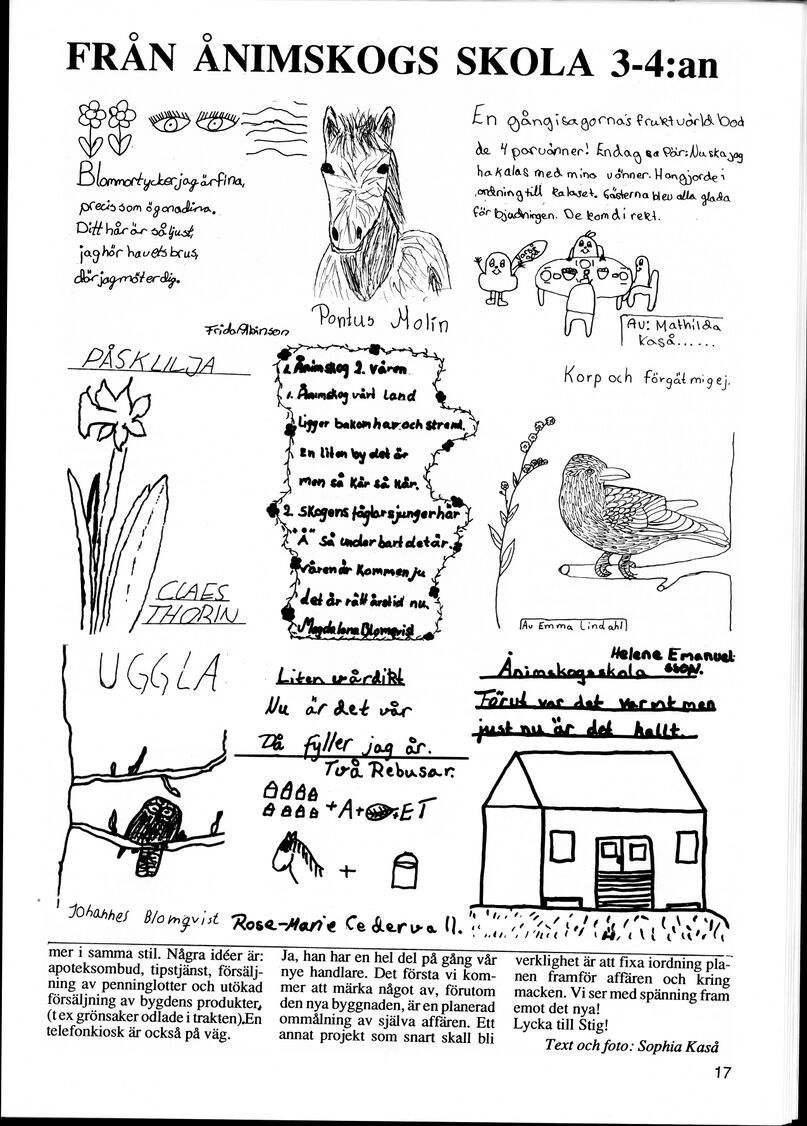 FRÅN ÅNIMSKOGS SKOLA 3-4:an
Blommor tycker jag är fina,
precis som ögonadina.
Ditt hår är så ljust
jag hör havets brus,
där jag möter dig.
Frida Albinson
Pontus Molin
En gång i sagornas fruktvärld bod
de 4 par vänner! En dag sa Pär: Nu ska jag
ha kalas med mina vänner. Han gjorde i
ordning till kalaset. Gästerna blev alla glada
för bjudningen. De kom di rekt.
Av: Mathilda
Kaså......
PÅSKLILJA
CLAES
THORIN
1. Ånimskog 2. våren
1. Ånimskog vårt land
Ligger bakom hav och strand.
En liten by det är
men så kär så kär.
2. Skogens fåglar sjunger här
"Å" så underbart det är.
Våren är kommen ju
det är rätt årstid nu.
Magdalena Blomqvist
Korp och förgät mig ej.
Av Emma Lindahl
UGGLA
Johannes Blomqvist
Liten vårdikt
Nu är det vår
Då fyller jag år.
Två Rebusar.
+A+ +ET
+
Rose-Marie Cedervall.
Helene Emanuel
sson.
Ånimskogsskola
Förut var det varmt men
just nu är det kallt.
mer i samma stil. Några idéer är:
apoteksombud, tipstjänst, försälj-
ning av penninglotter och utökad
försäljning av bygdens produkter,
(t ex grönsaker odlade i trakten).En
telefonkiosk är också på väg.
Ja, han har en hel del på gång vår
nye handlare. Det första vi kom-
mer att märka något av, förutom
den nya byggnaden, är en planerad
ommålning av själva affären. Ett
annat projekt som snart skall bli
verklighet är att fixa iordning pla-
nen framför affären och kring
macken. Vi ser med spänning fram
emot det nya!
Lycka till Stig!
Text och foto: Sophia Kaså
17